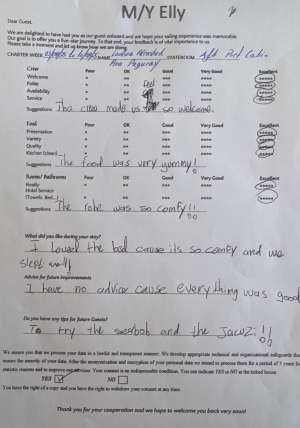 M/Y Elly
Dear Guest,
We are delighted to have had you as our guest onboard and we hope your sailing experience was memorable.
Our goal is to offer you a five-star journey. To that end, your feedback is of vital importance to us.
Please take a moment and let us know how we are doing.
CHARTER WEEK NAME STATEROOM Aft Port Cabin
Crew Poor OK Good Very Good Excellent
Welcome * ** *** **** *****
Friendly * ** *** **** *****
Availability * ** *** **** *****
Service * ** *** **** *****
Suggestions The crew made us feel so welcome.
Food Poor OK Good Very Good Excellent
Presentation * ** *** **** *****
Variety * ** *** **** *****
Quality * ** *** **** *****
Kitchen * ** *** **** *****
Suggestions The food was very yummy!
Rooms/ Bathrooms Poor OK Good Very Good Excellent
Quality * ** *** **** *****
Hotel Service
(Towels, Bed...) * ** *** **** *****
Suggestions The robe was so comfy!!
What did you like during your stay?
I loved the bed cause its so comfy and we
slept well
Advice for future improvements
I have no advice cause everything was good
Do you have any tips for future Guests?
To try the seabob and the Jacuzi!!
We assure you that we process your data in a lawful and transparent manner. We develop appropriate technical and organizational safeguards that
ensure the security of your data. After the anonymization and encryption of your personal data we intend to process them for a period of 5 years for
statistic reasons and to improve our services. Your consent is an indispensable condition. You can indicate YES or NO at the ticked boxes:
YES NO
You have the right of a copy and you have the right to withdraw your consent at any time.
Thank you for your cooperation and we hope to welcome you back very soon!